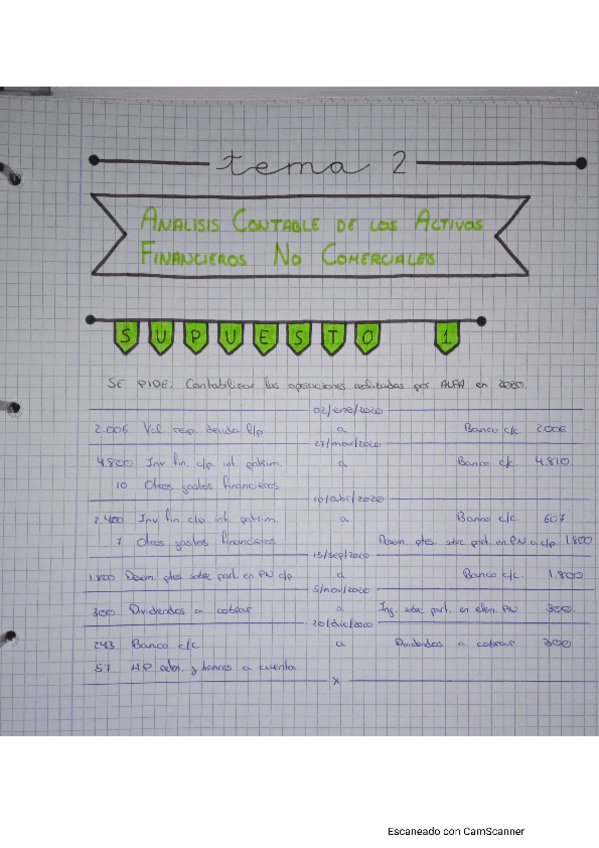 tema 2
ANALISIS CONTABLE DE LOS ACTIVOS
FINANCIEROS NO COMERCIALES
SUPUESTO 1
SE PIDE: Contabilizar las operaciones realizadas por ALFA en 2020.
02/ene/2020
2.006 Val. rep. deuda l/p a Banco c/c 2.006
27/mar/2020
4.800 Inv fin. c/p int. patrim. a Banco c/c. 4.810
10 Otros gastos financieros
10/abr/2020
2.400 Inv fin c/p int. patrim. a Banco c/c. 607
7 Otros gastos financieros Desem. ptes. sobre part. en PN a c/p 1.800
15/sep/2020
1.800 Desem. ptes sobre part. en PN c/p. a Banco c/c. 1.800
5/nov/2020
300 Dividendos a cobrar a Ing. sobre part. en elem. PN 300.
20/dic/2020
243 Banco c/c a Dividendos a cobrar 300
57. HP reten. y a cuenta
x
Escaneado con CamScanner